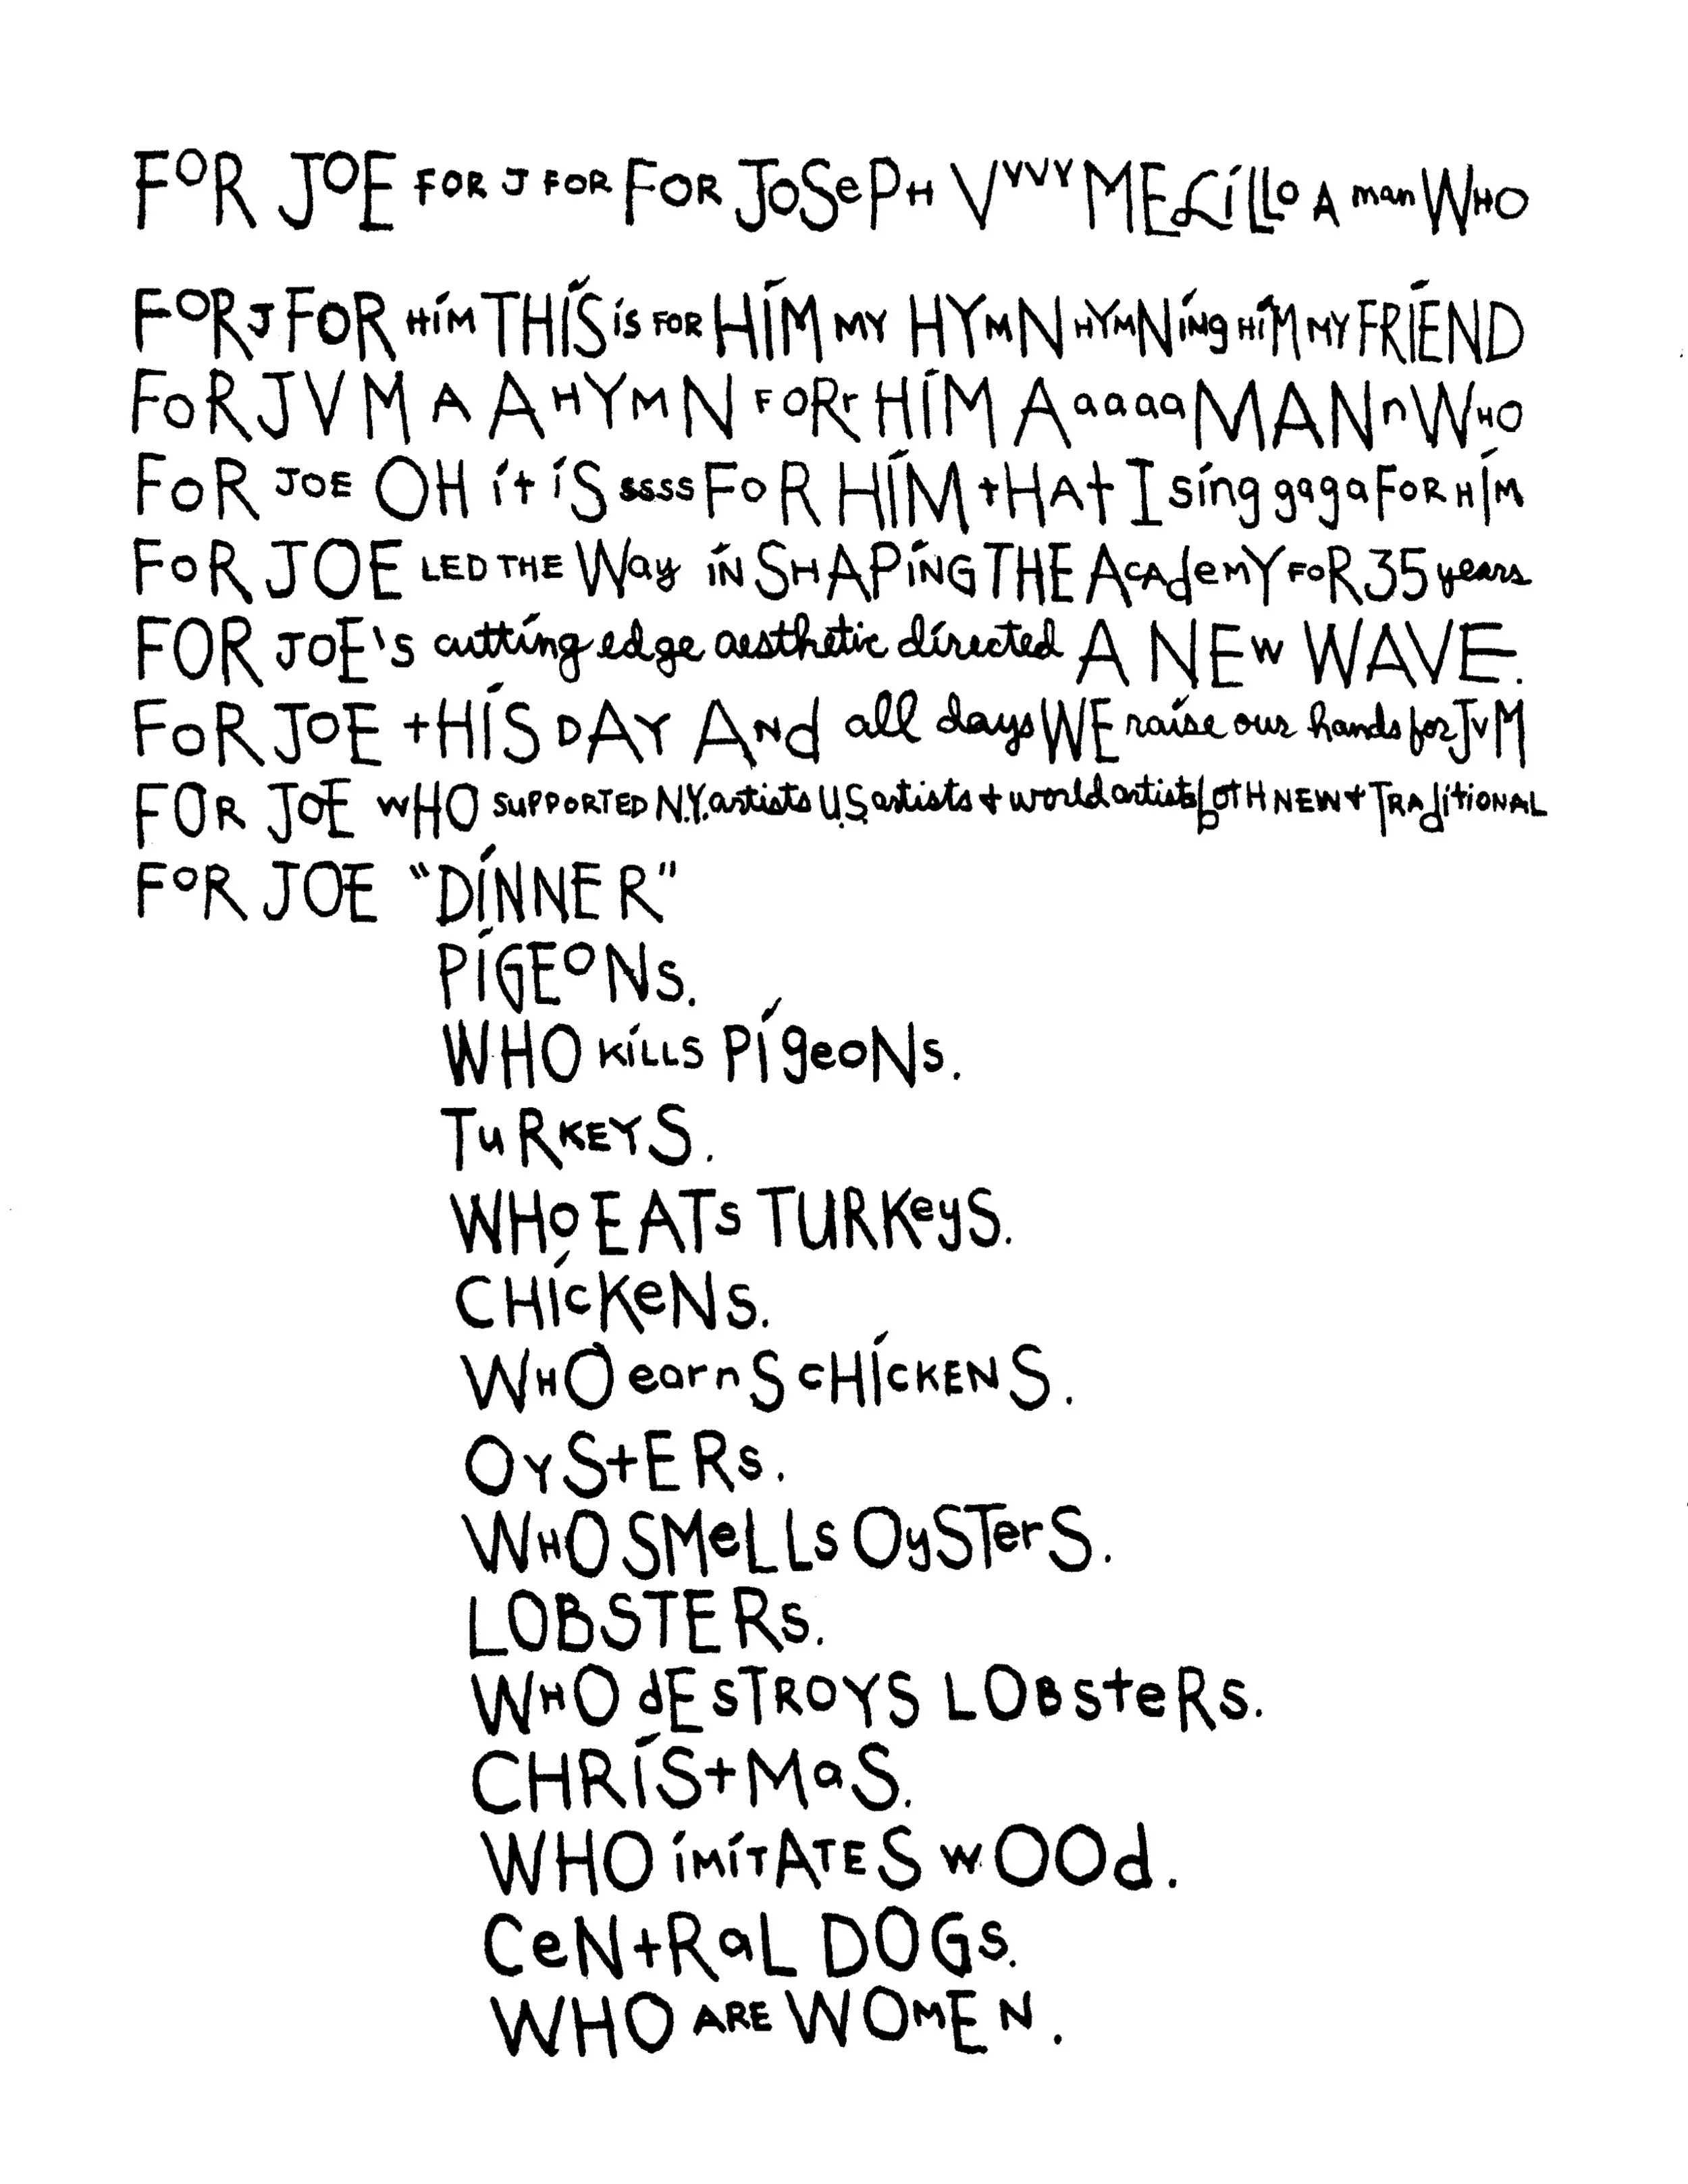 FOR JOE FOR J FOR FOR JOSePH VYVYY MELíLLO A man WHO
FOR J FOR HíM THíS iS FOR HíM MY HYMN HYMNiNg HiM MY FRíEND
FoR JVM A A HYMN FORr HíM A aaaa MANn WHO
FoR JOE OH it íS ssss FoR HíM tHAt I síng gaga FOR HíM
FoR JOE LED THE Way iN SHAPiNG THE ACAdeMY FoR 35 years
FOR JOE's cutting edge aesthetic dírected A NEw WAVE.
FoR JOE tHíS DAY ANd all days WE raíse our hands for JVM
FOR JOE wHO SUPPORTED N.Y. artists U.S. artists + world artists bOTH NEW + TRAdítiONAL
FOR JOE "DíNNER"
PíGEONs.
WHO KíLLS PígeoNs.
TuRKEYS.
WHo EATs TURKeyS.
CHícKeNs.
WHO earnS cHíCKENS.
OYStERs.
WHO SMeLLs OySTerS.
LOBSTERs.
WHO dEsTROYS LOBsteRs.
CHRíStMaS.
WHO íMíTATES wOOd.
CeNtRaL DOGs.
WHO ARE WOMEN.